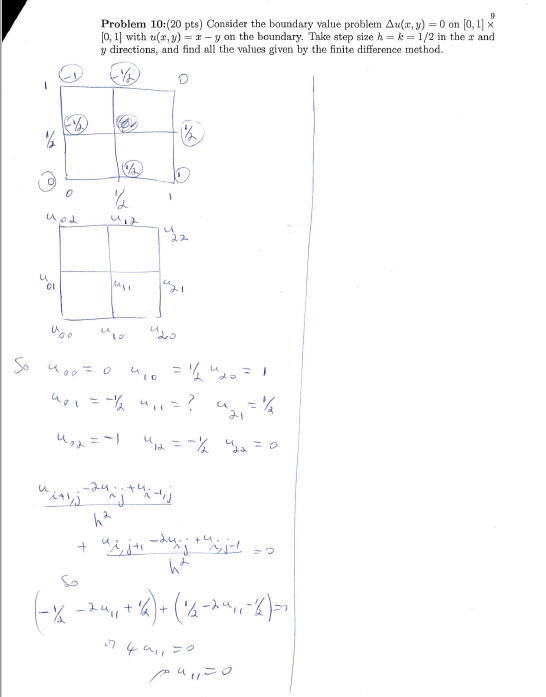 9
Problem 10:(20 pts) Consider the boundary value problem Δu(x, y) = 0 on [0, 1] ×
[0, 1] with u(x, y) = x − y on the boundary. Take step size h = k = 1/2 in the x and
y directions, and find all the values given by the finite difference method.
-1 -1/2 0
1
-1/2 1/2
1/2
1/2 1
0
0 1/2 1
u02 u12 u22
u01 u11 u21
u00 u10 u20
So u00 = 0 u10 = 1/2 u20 = 1
u01 = -1/2 u11 = ? u21 = 1/2
u02 = -1 u12 = -1/2 u22 = 0
u i+1,j - 2u ij + u i-1,j
h²
+ u i,j+1 - 2u ij + u i,j-1 = 0
h²
So
(-1/2 - 2u11 + 1/2) + (1/2 - 2u11 - 1/2) = 0
4u11 = 0
u11 = 0